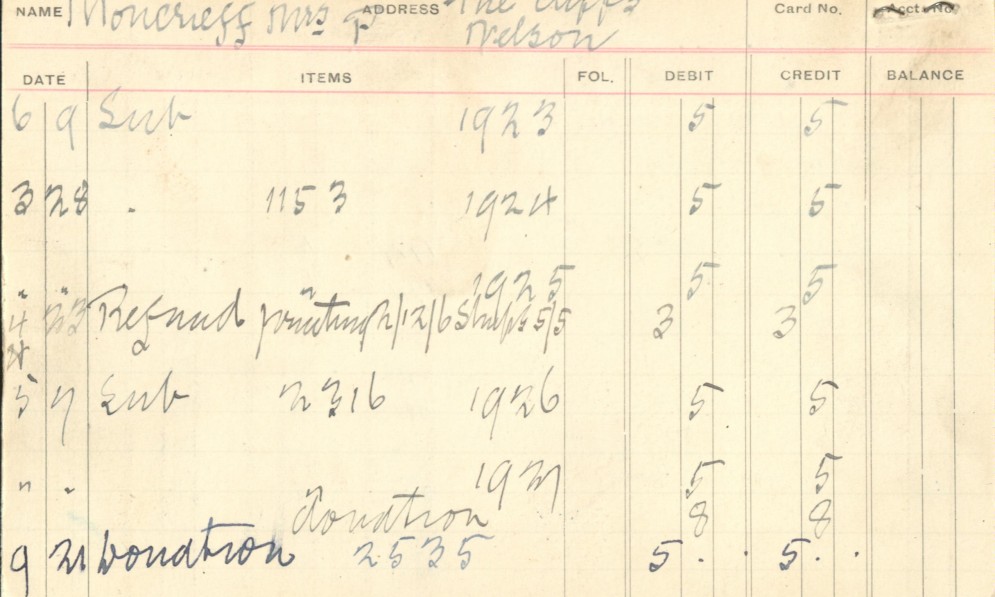 NAME Moncrieff Mrs P ADDRESS The Cliffs Card No. Acct. No.
Nelson
DATE ITEMS FOL. DEBIT CREDIT BALANCE
6 9 Sub 1923 5 5
3 28 . 1153 1924 5 5
" " " 1925 5 5
4 23 Refund printing 2/12/6 5/5 3 3
5 7 Sub 2316 1926 5 5
" " 1927 5 5
donation 8 8
9 21 Donation 2535 5 . . 5 . .